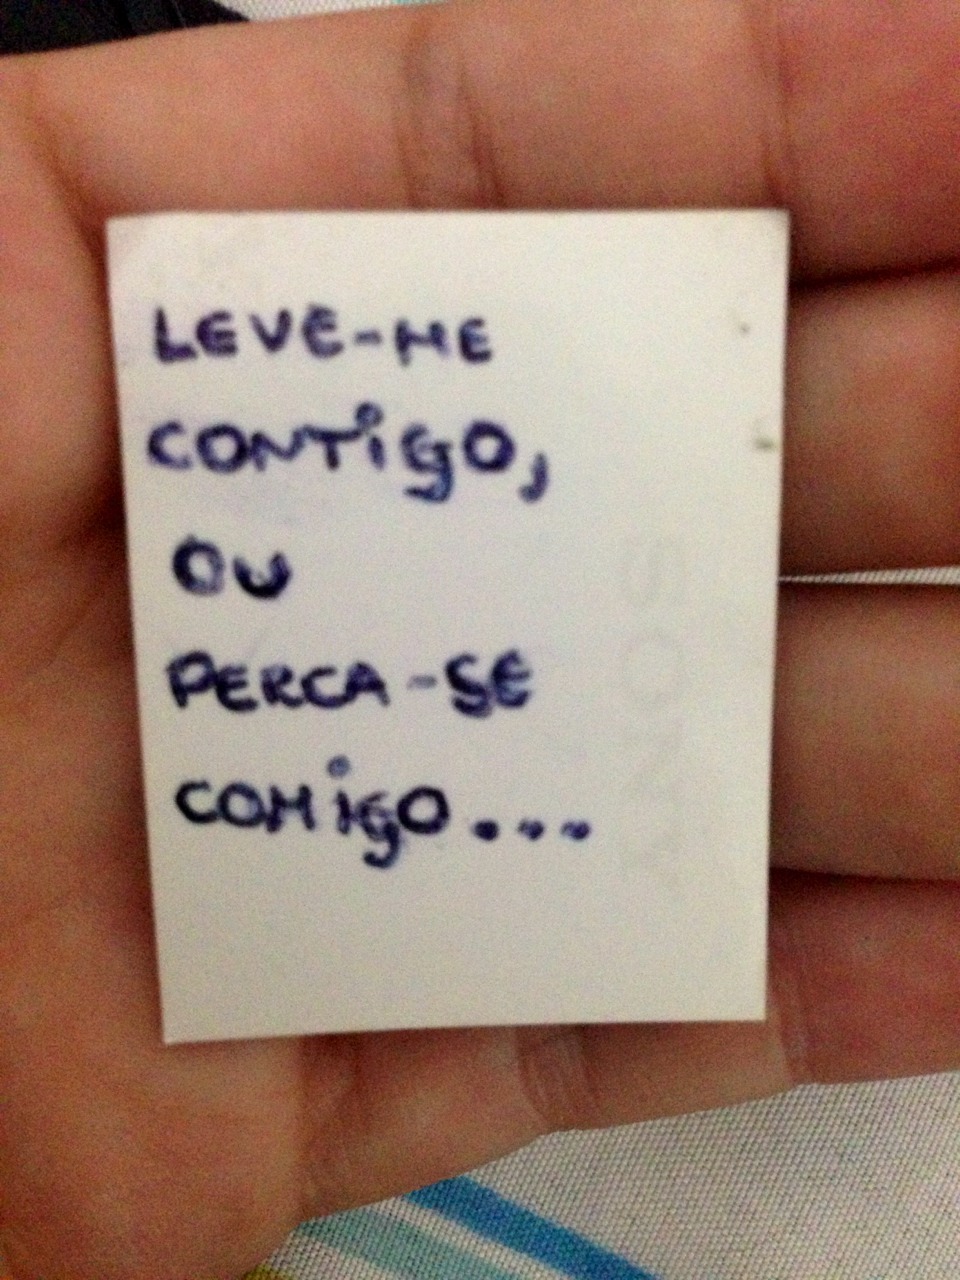 LEVE-ME
CONTiGO,
OU
PERCA-SE
COMiGO...